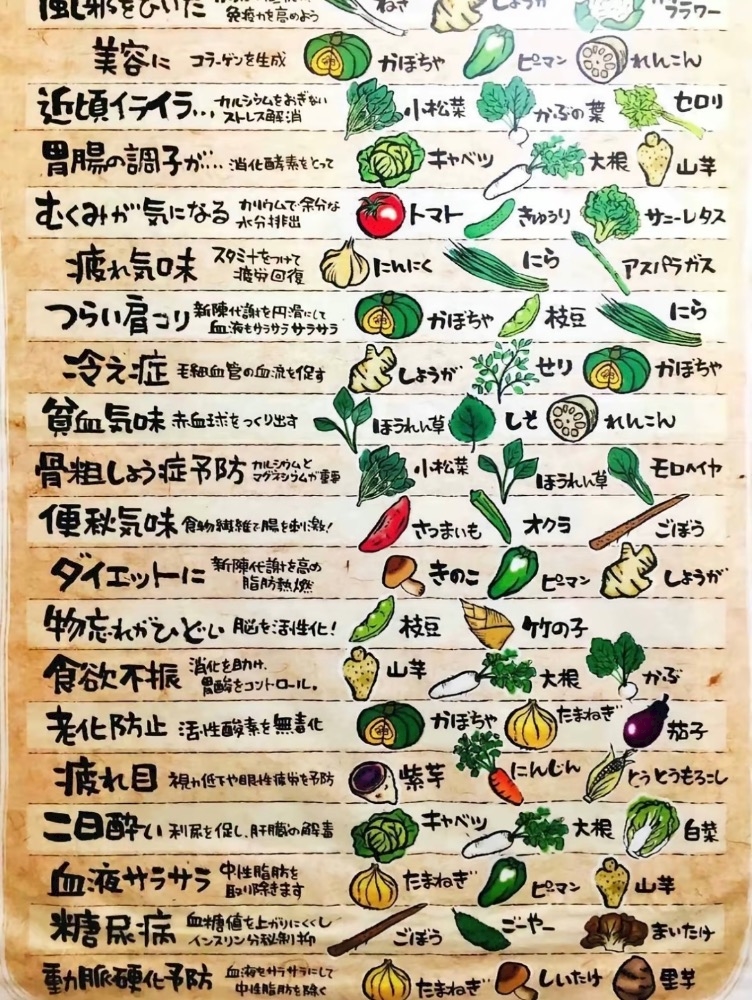 風邪をひいた 免疫力を高めよう ねぎ しょうが フラワー
美容に コラーゲンを生成 かぼちゃ ピーマン れんこん
近頃イライラ… カルシウムをおぎない
ストレス解消 小松菜 かぶの葉 セロリ
胃腸の調子が… 消化酵素をとって キャベツ 大根 山芋
むくみが気になる カリウムで余分な
水分排出 トマト きゅうり サニーレタス
疲れ気味 スタミナをつけて
疲労回復 にんにく にら アスパラガス
つらい肩コリ 新陳代謝を円滑にして
血液もサラサラサラサラ かぼちゃ 枝豆 にら
冷え症 毛細血管の血流を促す しょうが せり かぼちゃ
貧血気味 赤血球をつくり出す ほうれん草 しそ れんこん
骨粗しょう症予防 カルシウムと
マグネシウムが重要 小松菜 ほうれん草 モロヘイヤ
便秘気味 食物繊維で腸を刺激! さつまいも オクラ ごぼう
ダイエットに 新陳代謝を高め
脂肪熱燃 きのこ ピーマン しょうが
物忘れがひどい 脳を活性化! 枝豆 竹の子
食欲不振 消化を助け、
胃酸をコントロール。 山芋 大根 かぶ
老化防止 活性酸素を無毒化 かぼちゃ たまねぎ 茄子
疲れ目 視力低下や眼性疲労を予防 紫芋 にんじん とうとうもろこし
二日酔い 利尿を促し、肝臓の解毒 キャベツ 大根 白菜
血液サラサラ 中性脂肪を
取り除きます たまねぎ ピーマン 山芋
糖尿病 血糖値を上がりにくくし
インスリン分秘制抑 ごぼう ごーやー まいたけ
動脈硬化予防 血液をサラサラにして
中性脂肪を除く たまねぎ しいたけ 里芋